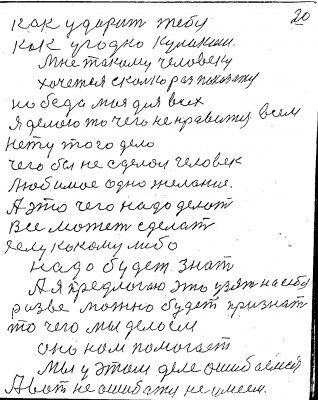 20
как ударит тебу
как угодно кулаком.
Мне такому человеку
хочется сколко раз показату
но беда моя для всех
Я делаю то чего не нравитя всем
нету того дело
чего бы не сделал человек
Любимое одно желание.
А это чего надо делат
Все может сделат
какому либо
надо будет знат
А я предлогаю это узят на себя
разве можно будет признат
то чего мы делоем
оно нам помогает
Мы у этом деле ошибаемся
А вот не ошибату не умеем.